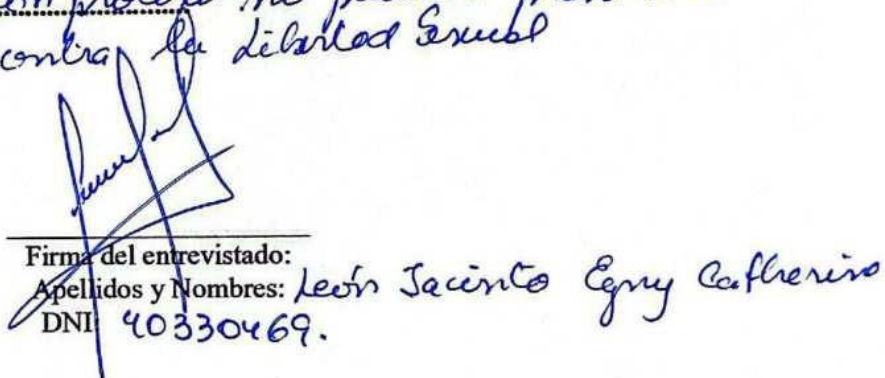 contra la Libertad Sexual
Firma del entrevistado:
Apellidos y Nombres: León Jacinto Egny Catherino
DNI 40330469.